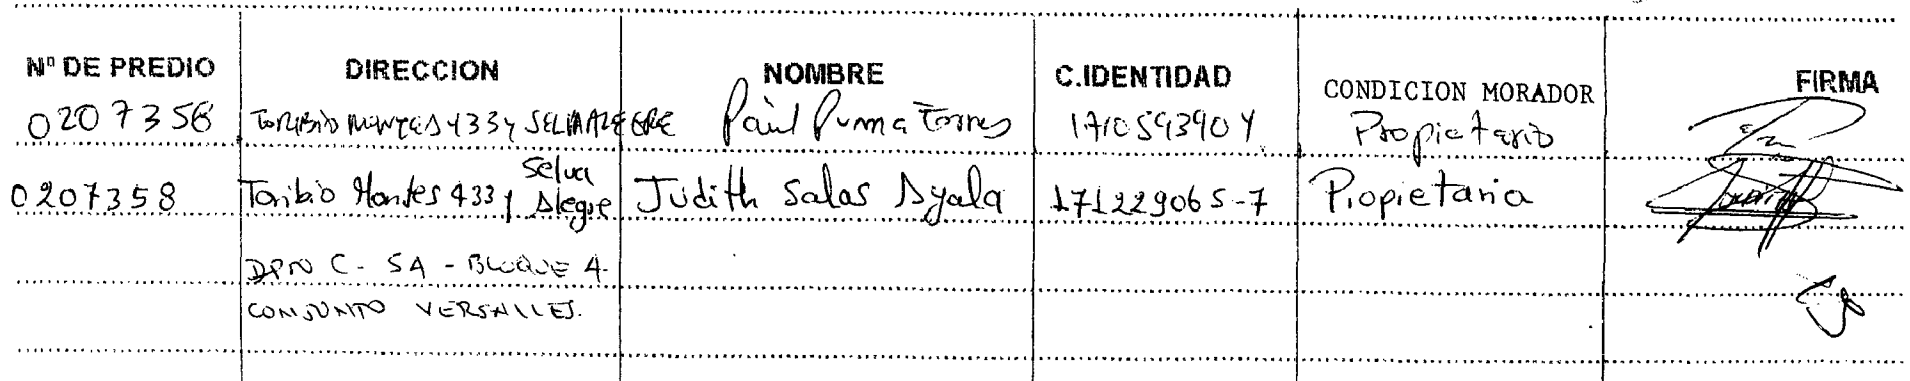 Nº DE PREDIO DIRECCION NOMBRE C.IDENTIDAD CONDICION MORADOR FIRMA
0207358 TORIBIO MONTES 433 y SELVA ALEGRE Paúl Puma Torres 171059390Y Propietario
0207358 Toribio Montes 433 y Selva Alegre Judith Salas Ayala 171229065-7 Propietaria
DPTO C - SA - BLOQUE 4.
CONJUNTO VERSALLES.